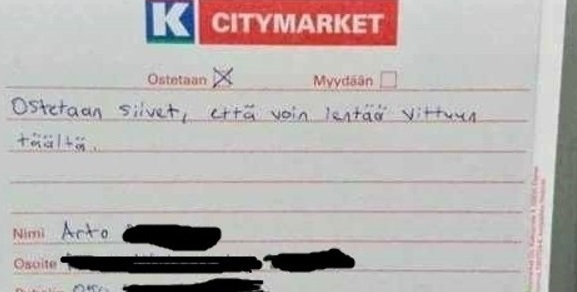 K CITYMARKET
Ostetaan Myydään
Ostetaan siivet, että voin lentää vittuun
täältä.
Nimi Arto
Osoite